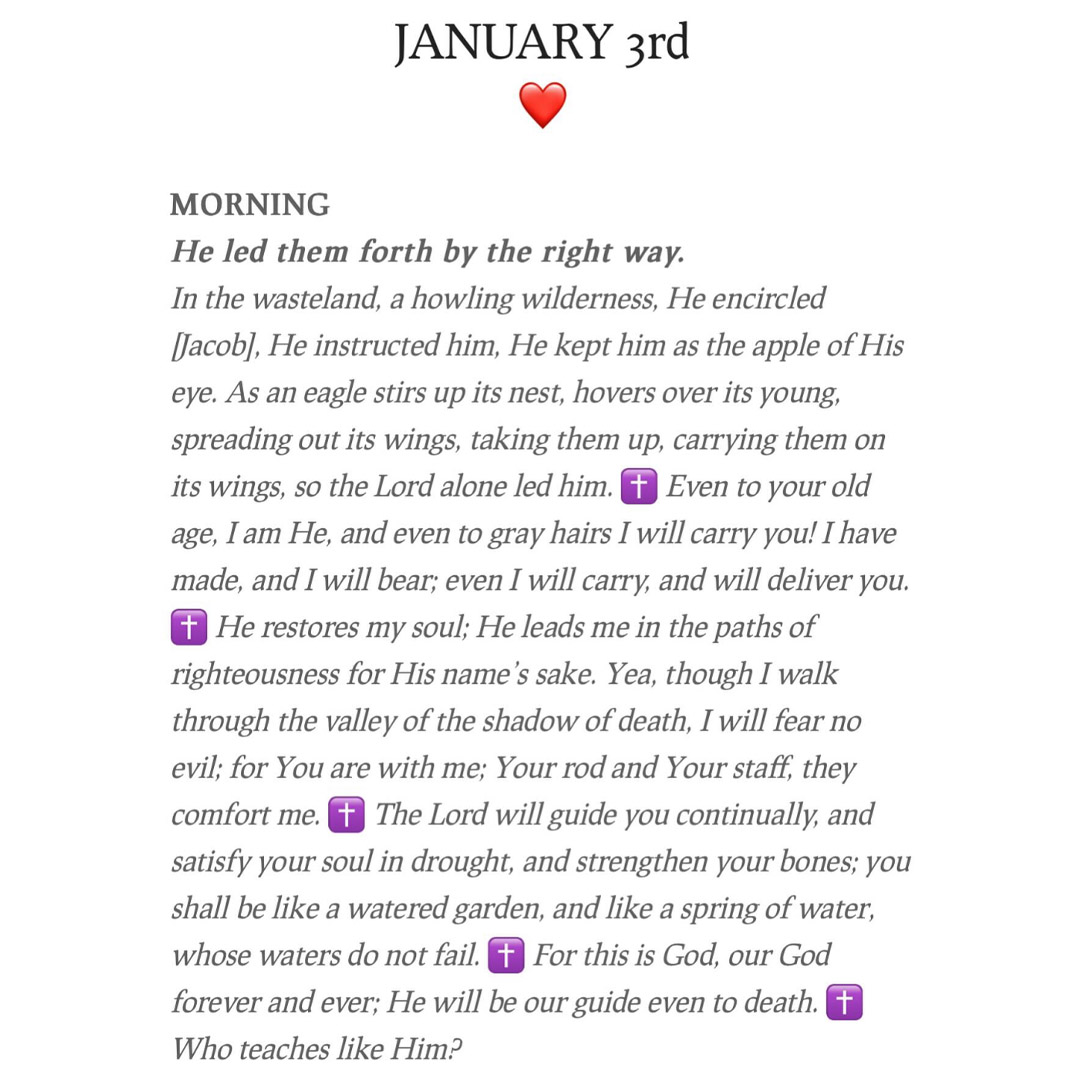 JANUARY 3rd
❤️
MORNING
He led them forth by the right way.
In the wasteland, a howling wilderness, He encircled
[Jacob], He instructed him, He kept him as the apple of His
eye. As an eagle stirs up its nest, hovers over its young,
spreading out its wings, taking them up, carrying them on
its wings, so the Lord alone led him. ✝️ Even to your old
age, I am He, and even to gray hairs I will carry you! I have
made, and I will bear; even I will carry, and will deliver you.
✝️ He restores my soul; He leads me in the paths of
righteousness for His name’s sake. Yea, though I walk
through the valley of the shadow of death, I will fear no
evil; for You are with me; Your rod and Your staff, they
comfort me. ✝️ The Lord will guide you continually, and
satisfy your soul in drought, and strengthen your bones; you
shall be like a watered garden, and like a spring of water,
whose waters do not fail. ✝️ For this is God, our God
forever and ever; He will be our guide even to death. ✝️
Who teaches like Him?